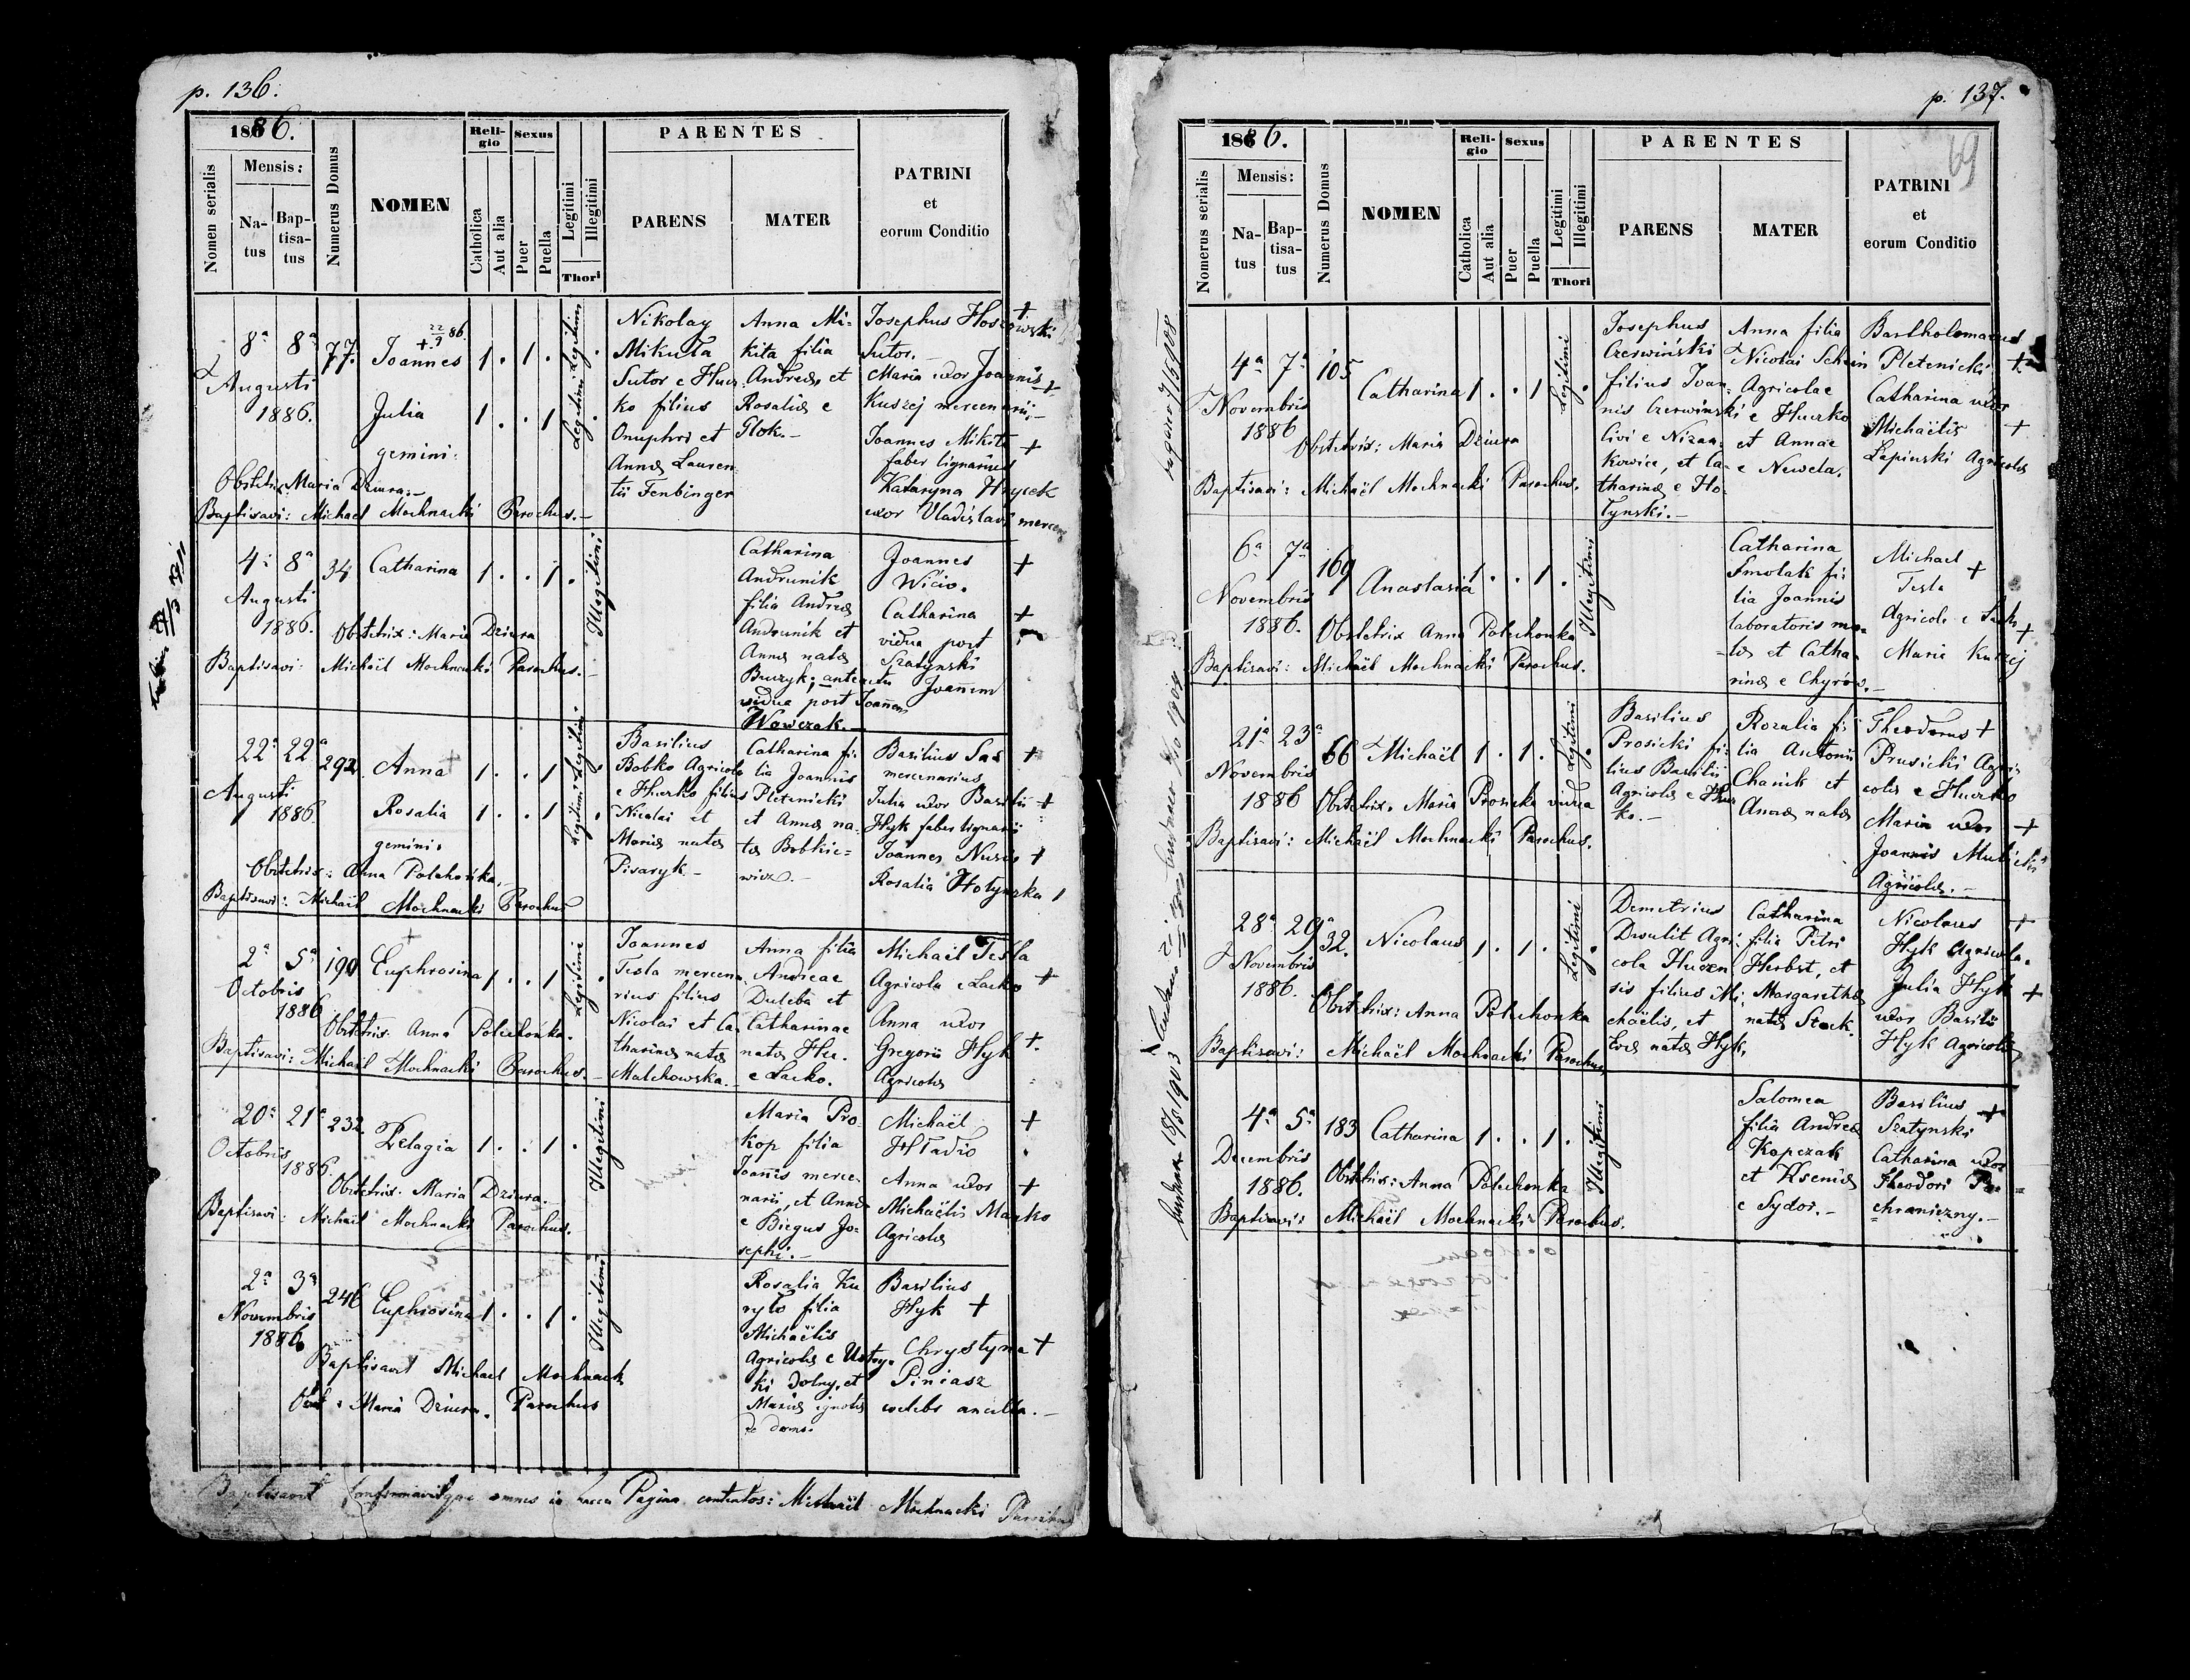 p. 136.
1886.
Nomen serialis
Mensis:
Na-
tus
Bap-
tisa-
tus
Numerus Domus
NOMEN
Reli-
gio
Catholica
Aut alia
Sexus
Puer
Puella
Legitimi
Illegitimi
Thori
PARENTES
PARENS
MATER
PATRINI
et
eorum Conditio
8ª 8ª 77. Joannes 1 . 1 .
Augusti
1886. Julia 1 . . 1
gemini.
Legitimi Legitimi
Nikolay
Mikuła
Sutor e Hur
ko filius
Onuphri et
Anna Lauren
tii Fenbinger
Anna Mi-
kita filia
Andreæ, et
Rosaliæ e
Plok.-
Josephus Hoszowski
Sutor.-
Maria uxor Joannis
Kuszej mercenarii-
Joannes Mikita
faber lignarius
Kataryna Hrycek
uxor Vladislavi mercen
Obstetrix Maria Dziura.-
Baptisavi: Michael Mochnacki Parochus.-
4ª 8ª 34 Catharina 1 . . 1 .
Augusti
1886.
Illegitimi
Catharina
Andrunik
filia Andreæ
Andrunik et
Annæ natæ
Bruzyk; anteactu
vidua post Joannem
Wawczak.-
Joannes
Wicio.
Catharina
vidua post
Szatynski
Joannem
Obstetrix: Maria Dziura
Baptisavi: Michaël Mochnacki Parochus.-
22ª 22ª 292 Anna 1 . . 1 .
Augusti
1886. Rosalia 1 . . 1 .
gemini.
Legitimi Legitimi
Basilius
Bobko Agricola
e Hurko filius
Nicolai et
Mariæ natæ
Pisaryk-
Catharina fi-
lia Joannis
Pletenicki
et Annæ na-
tæ Bobkie-
wicz.-
Basilius Sas
mercenarius
Julia uxor Basilii
Hyk faber lignarii
Joannes Nusio
Rosalia Hotynska
Obstetrix: Anna Polchonka.
Baptisavi: Michaël Mochnacki Parochus
2ª 5ª 190 Euphrosina 1 . . 1 .
Octobris
1886
Legitimi
Joannes
Tesla mercena
rius filius
Nicolai et Ca
tharinæ natæ
Malchowska.-
Anna filia
Andreae
Duleba et
Catharinae
natæ Hu.
e Lacko.
Michaël Tesla
Agricola e Lacko
Anna uxor
Gregorii Hyk
Agricolæ
Obstetrix. Anna Polechonka.
Baptisavi: Michaël Mochnacki Parochus.-
20ª 21ª 232 Pelagia 1 . . 1 .
Octobris
1886.
Illegitimi
Maria Pro
kop filia
Joannis merce-
narii, et Annæ
e Biegus Jo-
sephi.-
Michaël
Hładio
Anna uxor
Michaëlis Mazko
Agricolæ
Obstetrix. Maria Dziura.
Baptisavi: Michaël Mochnacki Parochus.
2ª 3ª 246 Euphrosina 1 . . 1 .
Novembris
1886
Illegitimi
Rosalia Ku
ryło filia
Michaëlis
Agricolæ e Ustry-
ki Dolny, et
Mariæ ignotæ
de domo.
Basilius
Hyk
Chrystyna
Piniasz
coelebs ancilla.-
Baptisavit Michael Mochnacki
Obst: Maria Dziura. Parochus
Baptisavit Confirmavitque omnes in hacce Pagina contentos: Michaël Mochnacki Parochus
p. 137.
69
1886.
Nomerus serialis
Mensis:
Na-
tus
Bap-
tisa-
tus
Numerus Domus
NOMEN
Reli-
gio
Catholica
Aut alia
Sexus
Puer
Puella
Legitimi
Illegitimi
Thori
PARENTES
PARENS
MATER
PATRINI
et
eorum Conditio
4ª 7ª 105 Catharina 1 . . 1 .
Novembris
1886
Legitimi
Josephus
Czerwiński
filius Joan-
nis Czerwinski
livi e Nizan-
kowice, et Ca-
tharinæ e Ho-
Tynski.-
Anna filia
Nicolai Schein
Agricolae
e Hurko
et Annae
e Newela.
Bartholomaeus
Pletenicki
Catharina uxor
Michaëlis
Lapinski Agricolæ
Obstetrix: Maria Dziura
Baptisavi: Michaël Mochnacki Parochus.
6ª 7ª 169 Anastasia 1 . . 1 .
Novembris
1886.
Illegitimi
Catharina
Smolak fi-
lia Joannis
laboratoris
et Catha-
rinæ e Chyrów.-
Michael
Tesla
Agricola e
Maria Kuszej
Obstetrix Anna Polechonka
Baptisavi: Michaël Mochnacki Parochus.
21ª 23ª 66 Michaël 1 . 1 .
Novembris
1886
Legitimi
Basilius
Prosicki fi-
lius Basilii
Agricolæ e Hur
ko.-
Rozalia fi-
lia Antonii
Chanik et
Annæ natæ
Theodorus
Prusicki Agri-
colæ e Hurko
Maria uxor
Joannis
Agricolæ.-
Obstetrix. Maria Prosicka vidua
Baptisavi: Michaël Mochnacki Parochus.
28ª 29ª 32. Nicolaus 1 . 1 .
Novembris
1886.
Legitimi
Demetrius
Drsulit Agri-
cola Hucen
sis filius Mi-
chaëlis, et
Evæ natæ Hyk.
Catharina
filia Petri
Herbst, et
Margarethæ
natæ Stock.
Nicolaus
Hyk Agricola.
Julia Hyk
uxor Basilii
Hyk Agricolæ
Obstetrix: Anna Polechonka
Baptisavi: Michaël Mochnacki Parochus
4ª 5ª 183 Catharina 1 . . 1 .
Decembris
1886.
Illegitimi
Salomea
filia Andreæ
Kopczak
et Kseniæ
e Sydor.-
Basilius
Szatynski
Catharina uxor
Theodori Pa-
chraniczny.-
Obstetrix: Anna Polechonka
Baptisavi: Michaël Mochnacki Parochus.